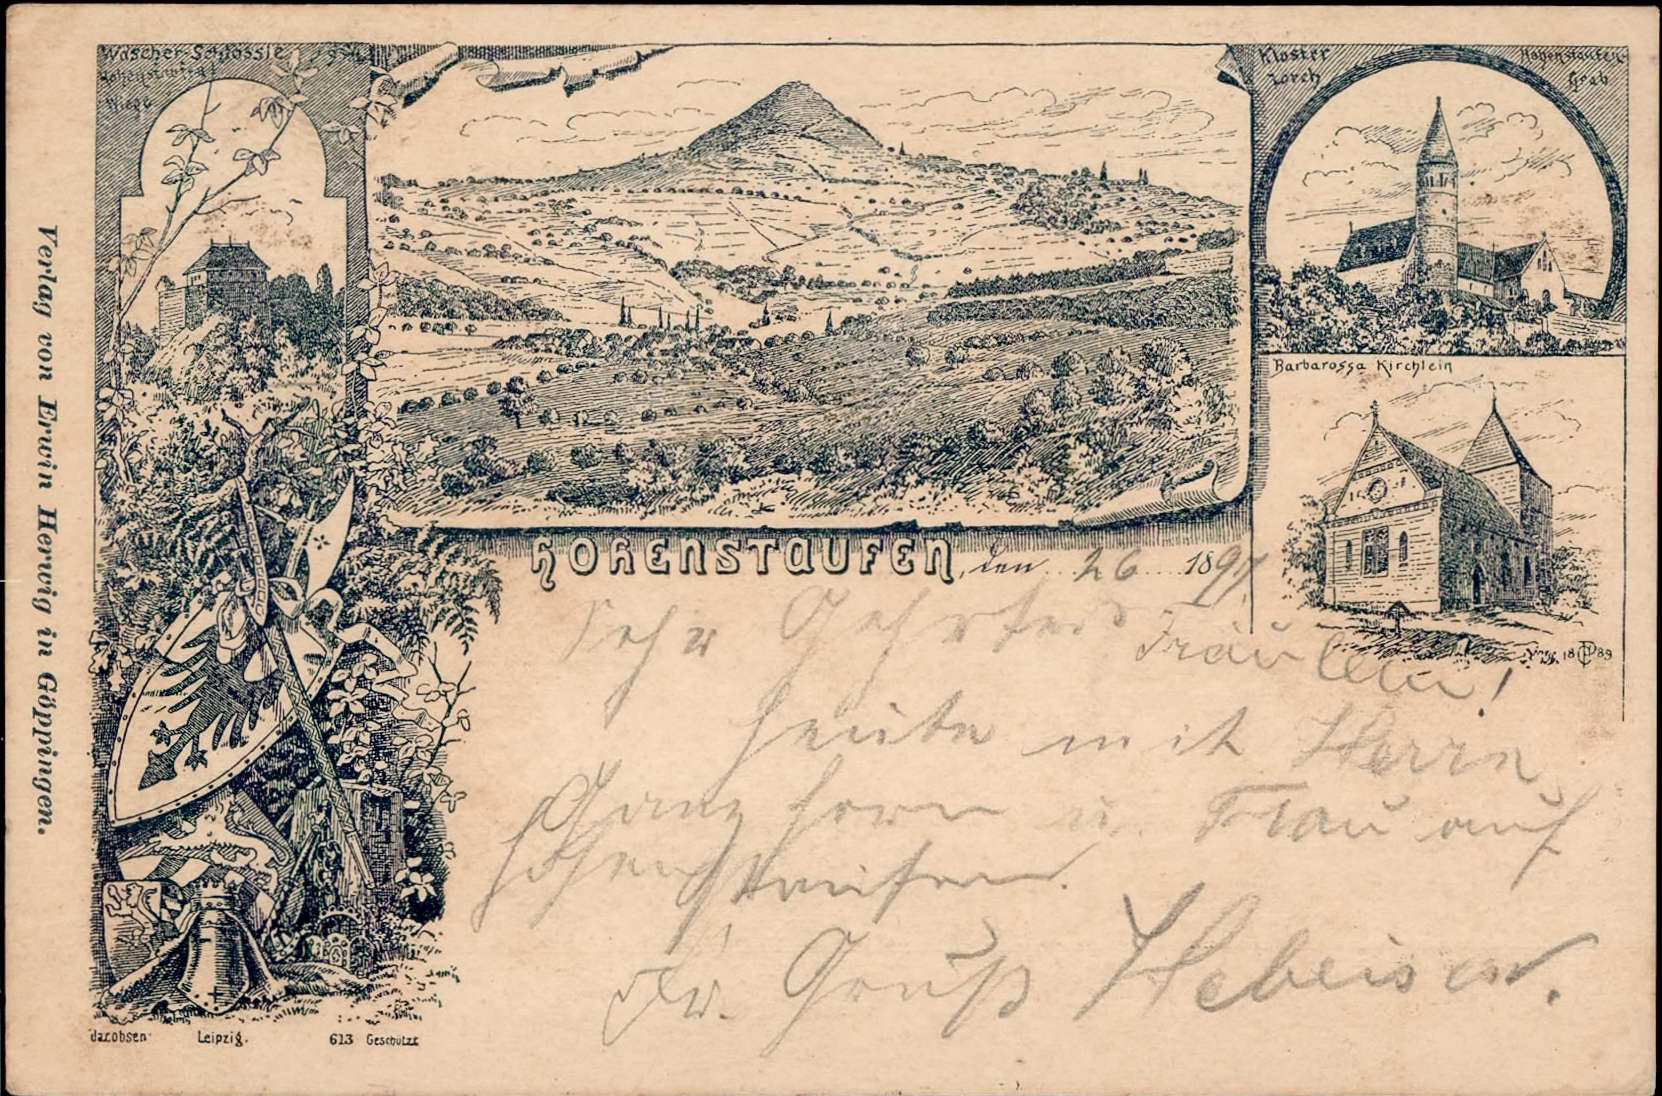 Wäscher-Schlössle
Hohenstaufens
Wiege
Kloster
Lorch
Hohenstaufen-
Grab
Barbarossa Kirchlein
Verlag von Erwin Herwig in Göppingen.
HOHENSTAUFEN, den 26 1897
Sehr Geehrtes
Fräulein!
Heute mit Herrn
Ganzhorn u. Frau auf
Hohenstaufen.
Fr. Gruß Hebeisen.
1889
Jacobsen Leipzig. 613 Geschützt